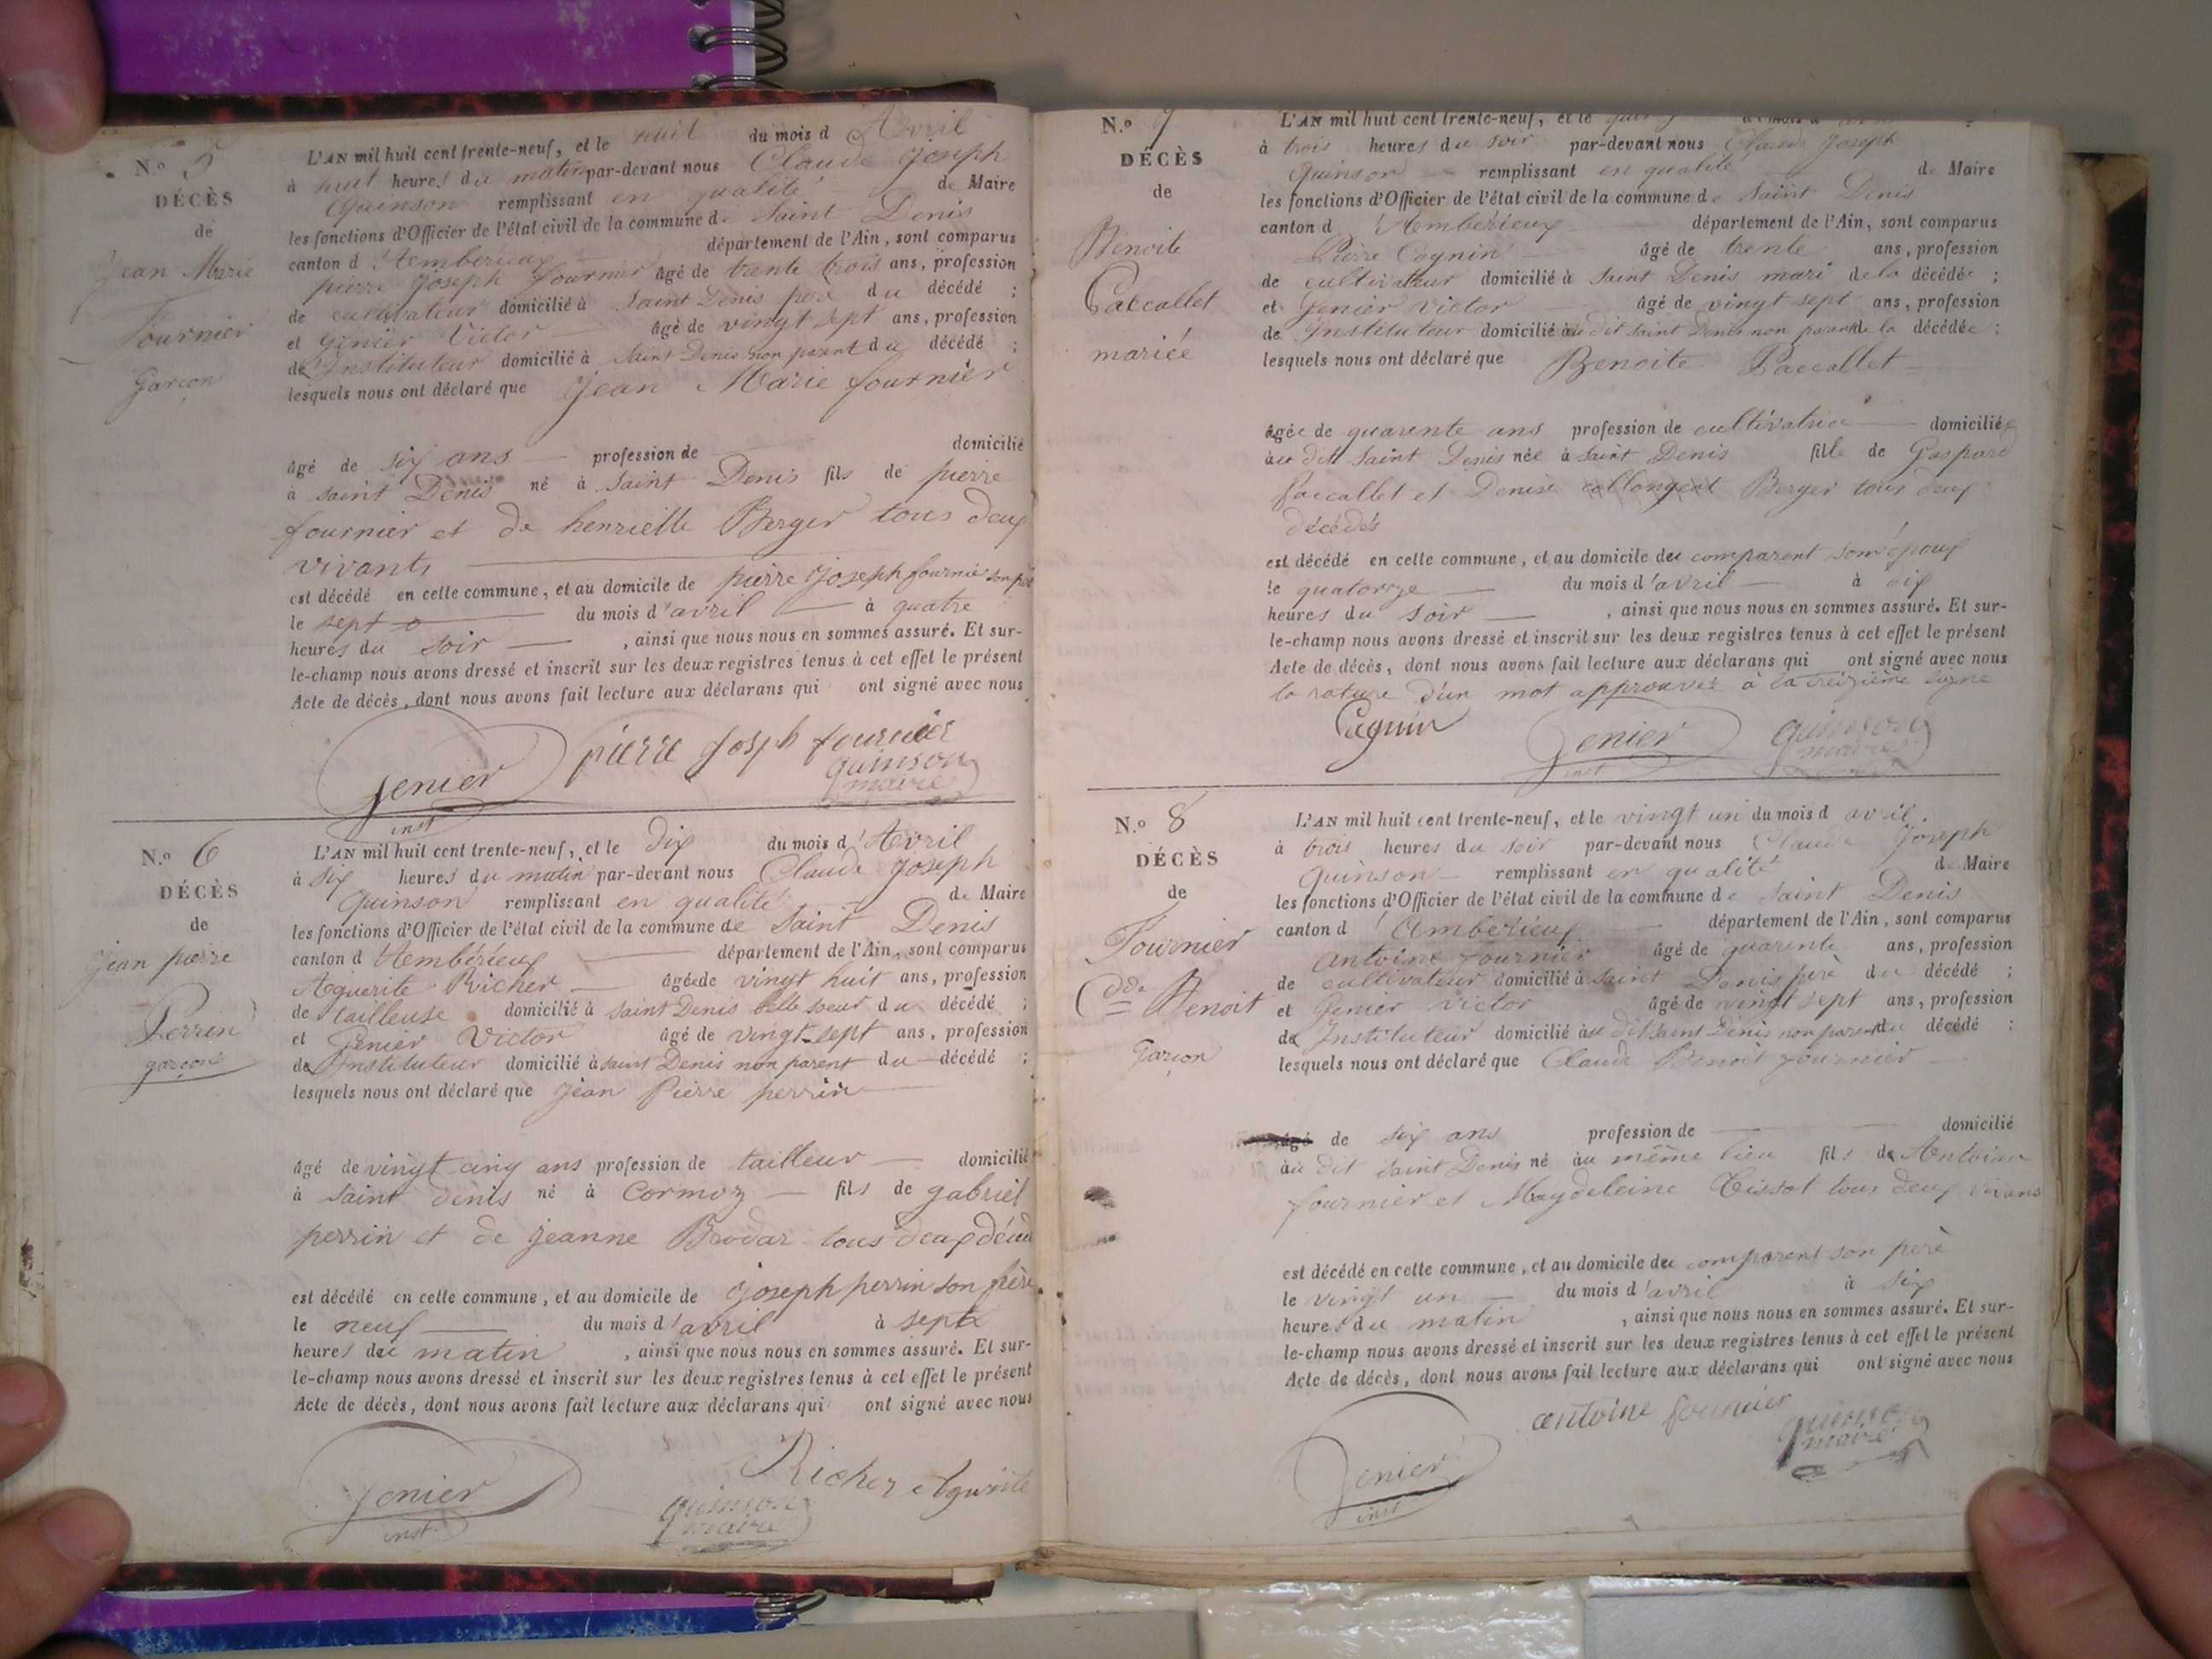 N.o 5
DÉCÈS
de
Jean Marie
Fournier
Garçon
L'AN mil huit cent trente-neuf, et le huit du mois d Avril
à huit heures du matin par-devant nous Claude Joseph
Quinson remplissant en qualité de Maire
les fonctions d'Officier de l'état civil de la commune de Saint Denis
canton d'Ambérieux département de l'Ain, sont comparus
pierre Joseph fournier âgé de trente trois ans, profession
de cultivateur domicilié à Saint Denis père du décédé ;
et Genier Victor âgé de vingt sept ans, profession
de Instituteur domicilié à Saint Denis non parent du décédé ;
lesquels nous ont déclaré que Jean Marie fournier
âgé de six ans profession de domicilié
à saint Denis né à Saint Denis fils de pierre
fournier et de henriette Berger tous deux
vivants
est décédé en cette commune, et au domicile de pierre Joseph fournier son père
le sept du mois d'avril à quatre
heures du soir , ainsi que nous nous en sommes assuré. Et sur-
le-champ nous avons dressé et inscrit sur les deux registres tenus à cet effet le présent
Acte de décès, dont nous avons fait lecture aux déclarans qui ont signé avec nous
Genier pierre Joseph fournier
inst quinson
maire
N.o 6
DÉCÈS
de
jean pierre
Perrin
garçon
L'AN mil huit cent trente-neuf, et le Dix du mois d'Avril
à six heures du matin par-devant nous Claude Joseph
Quinson remplissant en qualité de Maire
les fonctions d'Officier de l'état civil de la commune de Saint Denis
canton d'Ambérieux département de l'Ain, sont comparus
Aguerite Richer âgée de vingt huit ans, profession
de tailleuse domicilié à Saint Denis belle soeur du décédé ;
et Genier Victor âgé de vingt sept ans, profession
de Instituteur domicilié à saint Denis non parent du décédé ;
lesquels nous ont déclaré que Jean Pierre perrin
âgé de vingt cinq ans profession de tailleur domicilié
à Saint denis né à Cormoz fils de gabriel
perrin et de jeanne Brodar tous deux décéd
est décédé en cette commune, et au domicile de joseph perrin son frère
le neuf du mois d'avril à sept
heures du matin , ainsi que nous nous en sommes assuré. Et sur-
le-champ nous avons dressé et inscrit sur les deux registres tenus à cet effet le présent
Acte de décès, dont nous avons fait lecture aux déclarans qui ont signé avec nous
Genier Richer Aguerite
inst. quinson
maire
N.o 7
DÉCÈS
de
Benoite
Paccallet
mariée
L'AN mil huit cent trente-neuf, et le
à trois heures du soir par-devant nous Claude Joseph
Quinson remplissant en qualité de Maire
les fonctions d'Officier de l'état civil de la commune de Saint Denis
canton d'Ambérieux département de l'Ain, sont comparus
Pierre Cagnin âgé de trente ans, profession
de cultivateur domicilié à Saint Denis mari de la décédée ;
et Genier Victor âgé de vingt sept ans, profession
de Instituteur domicilié au dit Saint Denis non parent de la décédée ;
lesquels nous ont déclaré que Benoite Paccallet
âgée de quarente ans profession de cultivatrice domiciliée
au dit Saint Denis née à Saint Denis fille de Gaspard
paccallet et Denise collongeat Berger tous deux
décédés
est décédé en cette commune, et au domicile du comparent son époux
le quatorze du mois d'avril à dix
heures du soir , ainsi que nous nous en sommes assuré. Et sur-
le-champ nous avons dressé et inscrit sur les deux registres tenus à cet effet le présent
Acte de décès, dont nous avons fait lecture aux déclarans qui ont signé avec nous
la rature d'un mot approuvée à la treizième ligne
Cagnin Genier quinson
inst maire
N.o 8
DÉCÈS
de
Fournier
Cdde Benoit
Garçon
L'AN mil huit cent trente-neuf, et le vingt un du mois d avril
à trois heures du soir par-devant nous Claude Joseph
Quinson remplissant en qualité de Maire
les fonctions d'Officier de l'état civil de la commune de Saint Denis
canton d'Ambérieux département de l'Ain, sont comparus
Antoine fournier âgé de quarente ans, profession
de cultivateur domicilié à Saint Denis père du décédé ;
et Genier Victor âgé de vingt sept ans, profession
de Instituteur domicilié au dit Saint Denis non parent du décédé ;
lesquels nous ont déclaré que Claude Benoit fournier
âgé de six ans profession de domicilié
au dit Saint Denis né au même lieu fils de Antoine
fournier et Magdeleine Tissot tous deux vivans
est décédé en cette commune, et au domicile du comparent son père
le vingt un du mois d'avril à six
heures du matin , ainsi que nous nous en sommes assuré. Et sur-
le-champ nous avons dressé et inscrit sur les deux registres tenus à cet effet le présent
Acte de décès, dont nous avons fait lecture aux déclarans qui ont signé avec nous
antoine fournier quinson
maire
Genier
inst